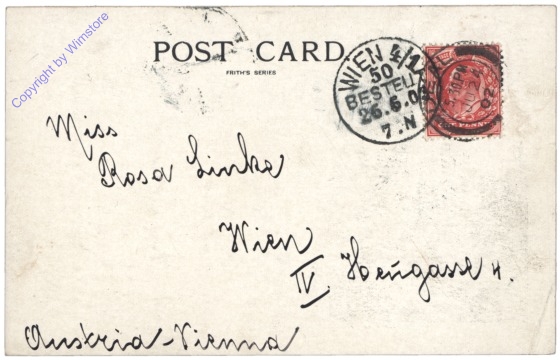 POST CARD
FRITH'S SERIES
WIEN 4/1
50
BESTELLT
26.6.0
7.N
Miss
Rosa Linke
Wien
IV. Heugasse 4.
Austria-Vienna
Copyright by Wimstore